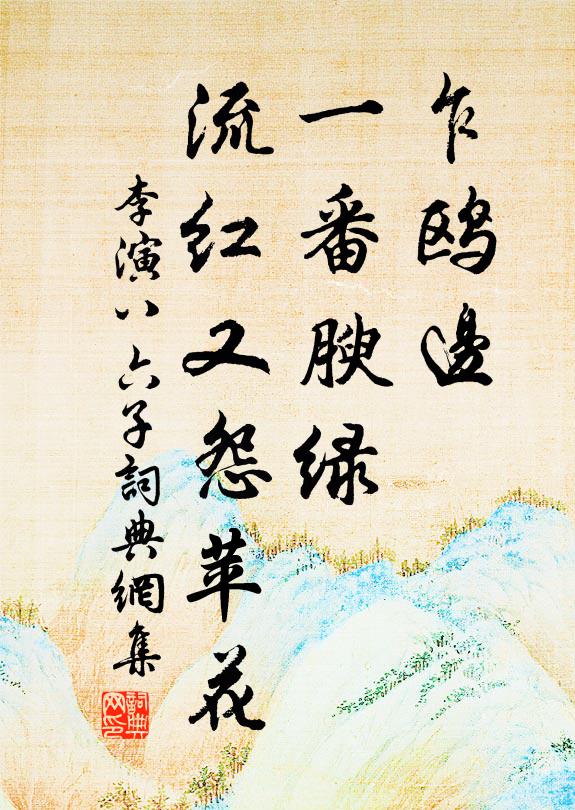 乍鸥邊
一番腴緑
流红又怨苹花
李演八六子詞典網集
詞典网印